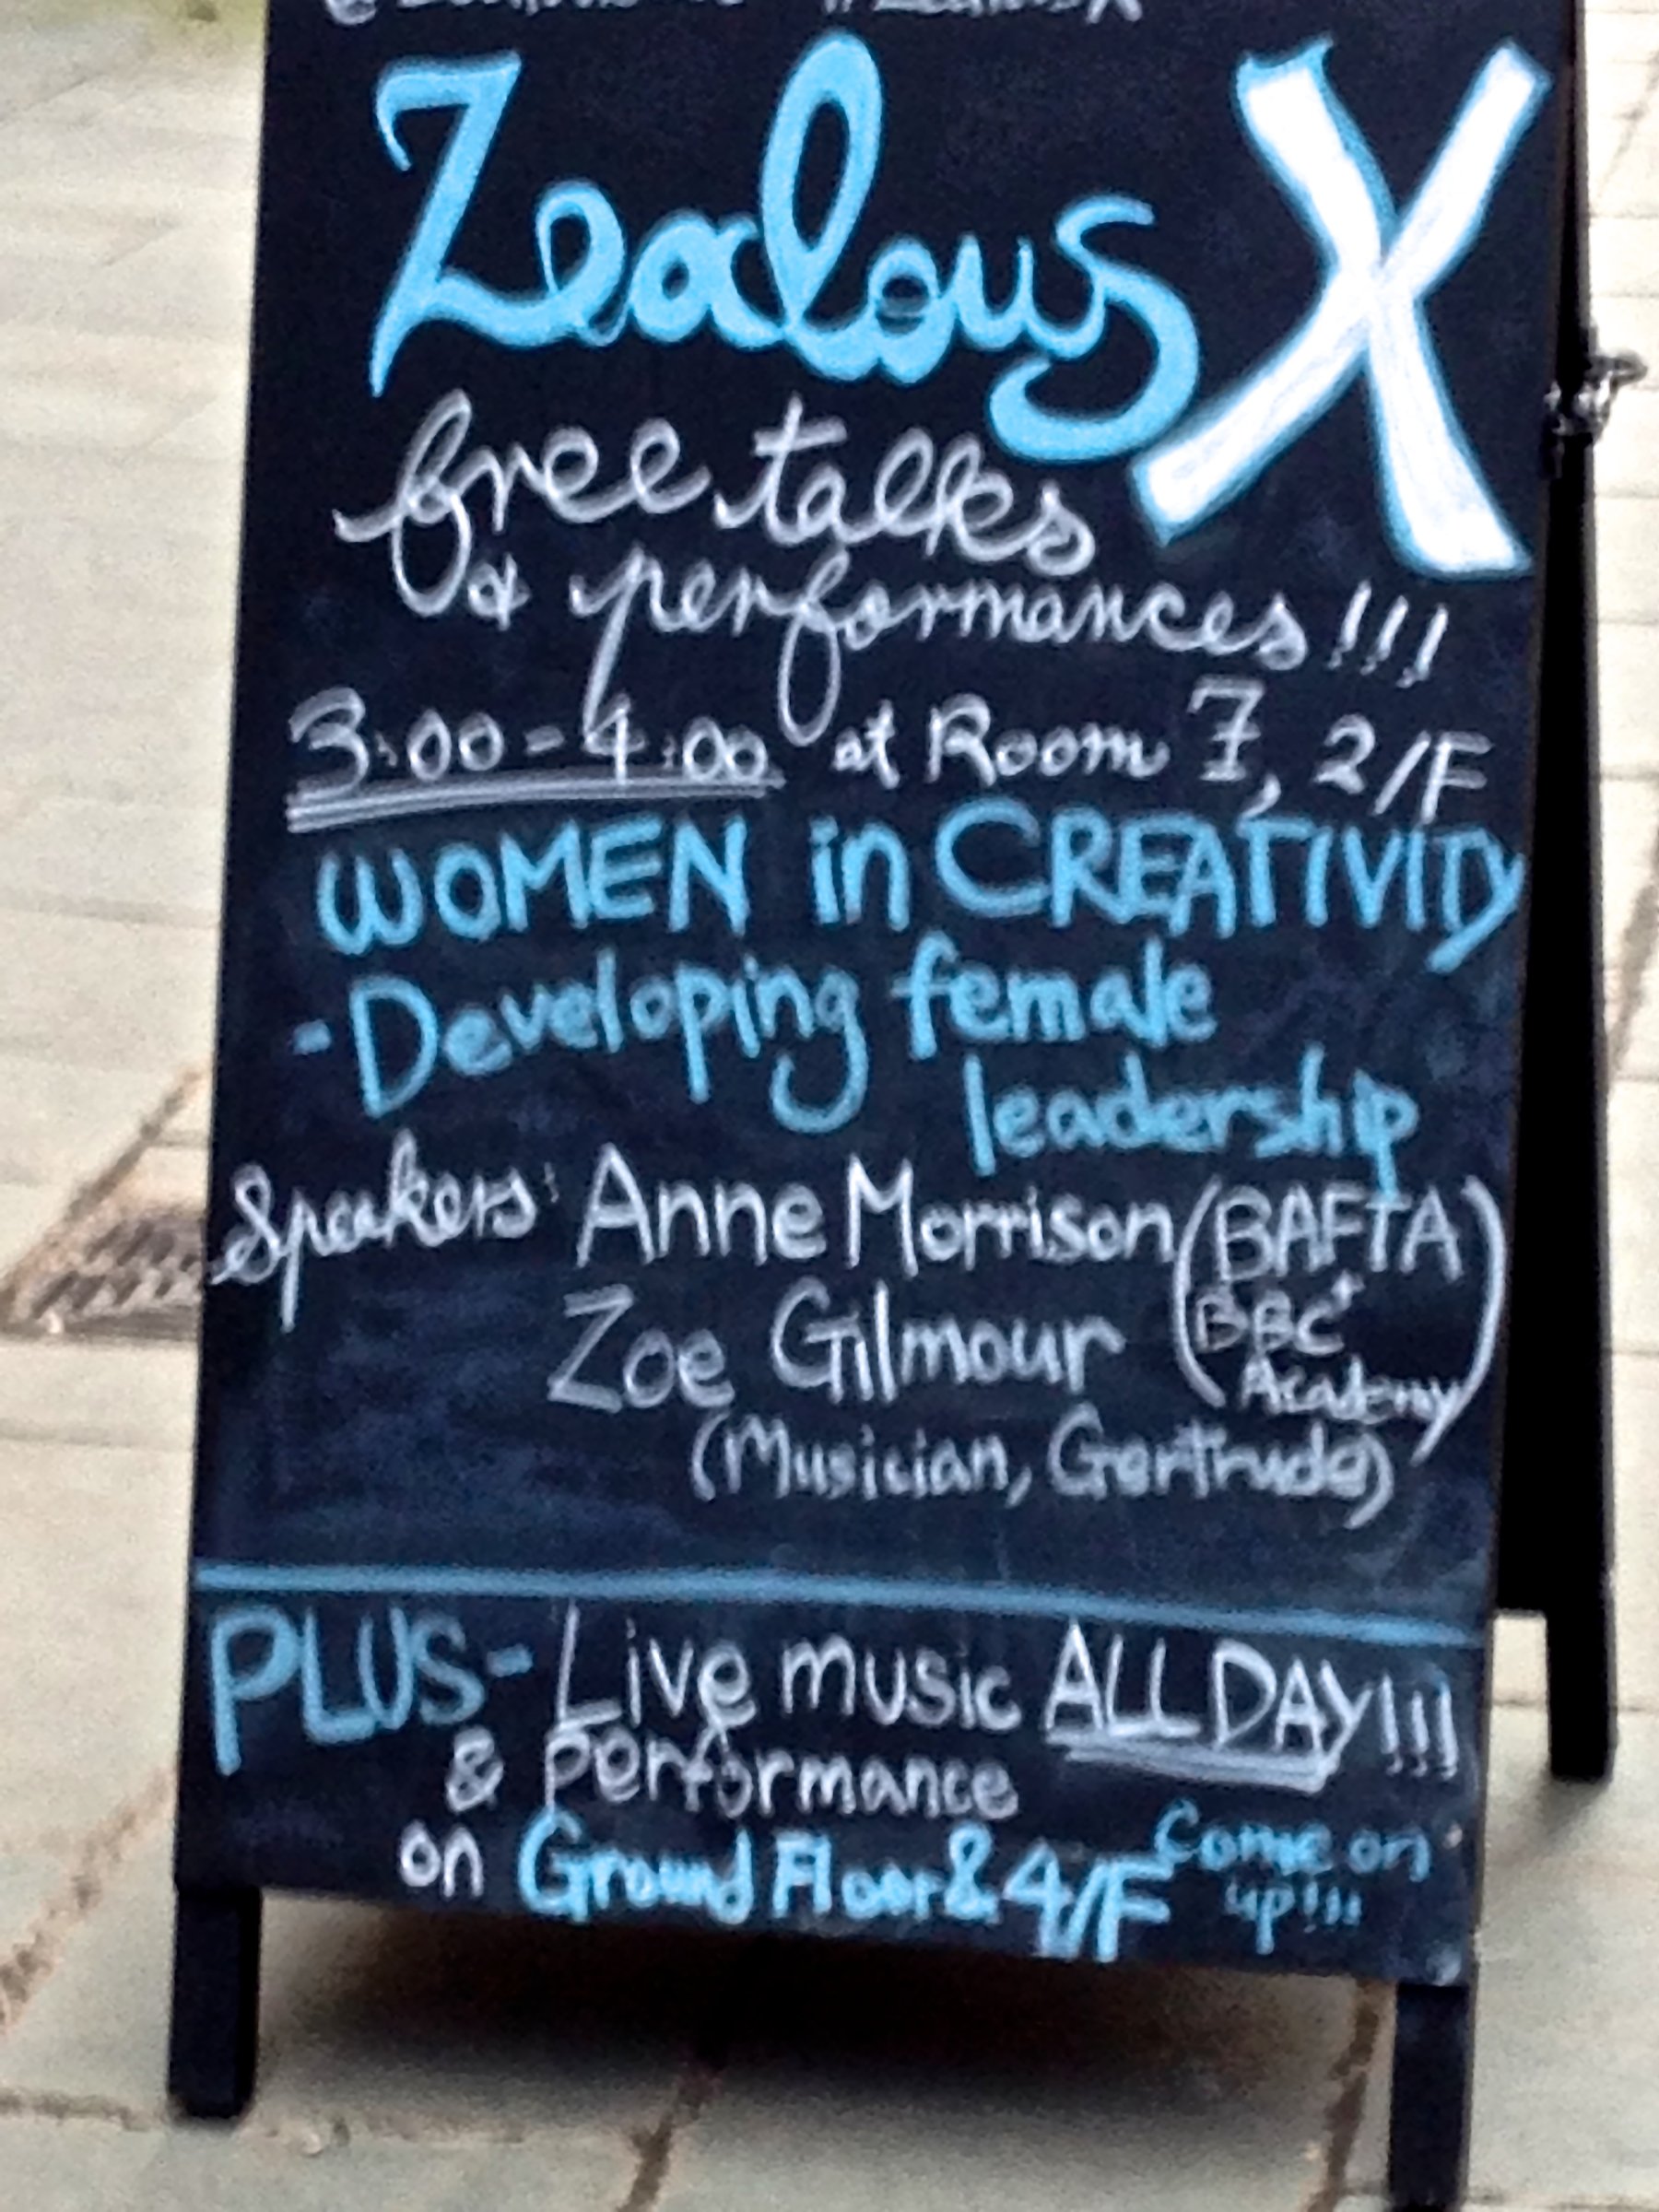 Zealous X
free talks
& performances!!!
3:00-4:00 at Room 7, 2/F
WOMEN in CREATIVITY
- Developing female
leadership
Speakers: Anne Morrison (BAFTA +
BBC
Academy)
Zoe Gilmour
(Musician, Gertrude)
PLUS - Live music ALL DAY!!!
& performance
on Ground Floor & 4/F Come on
up!!!